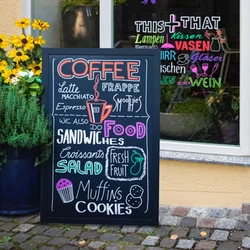 COFFEE
Latte
MACCHIATO
FRAPPE
Smoothie
Espresso
WE ALSO DO FOOD
SANDWICHES
Croissants
SALAD
FRESH
FRUIT
Muffins
COOKIES
THIS + THAT
Lampen
KISSEN
VASEN
Gläser
WEIN